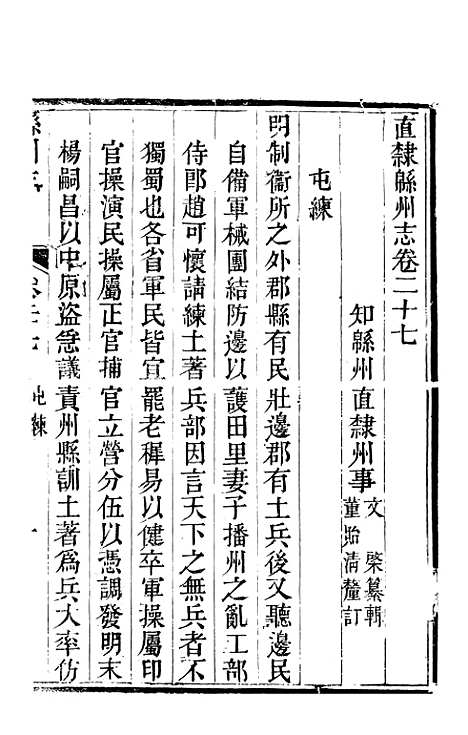 直隸緜州志卷二十七
知緜州直隸州事文棨纂輯
董貽清釐訂
屯練
明制衞所之外郡縣有民壯邊郡有土兵後又聽邊民
自備軍械團結防邊以護田里妻子播州之亂工部
侍郎趙可懷請練土著兵部因言天下之無兵者不
獨蜀也各省軍民皆宜罷老穉易以健卒軍操屬印
官操演民操屬正官捕官立營分伍以憑調發明末
楊嗣昌以中原盜急議責州縣訓土著爲兵大率仿
緜州志
卷二十七
屯練
一